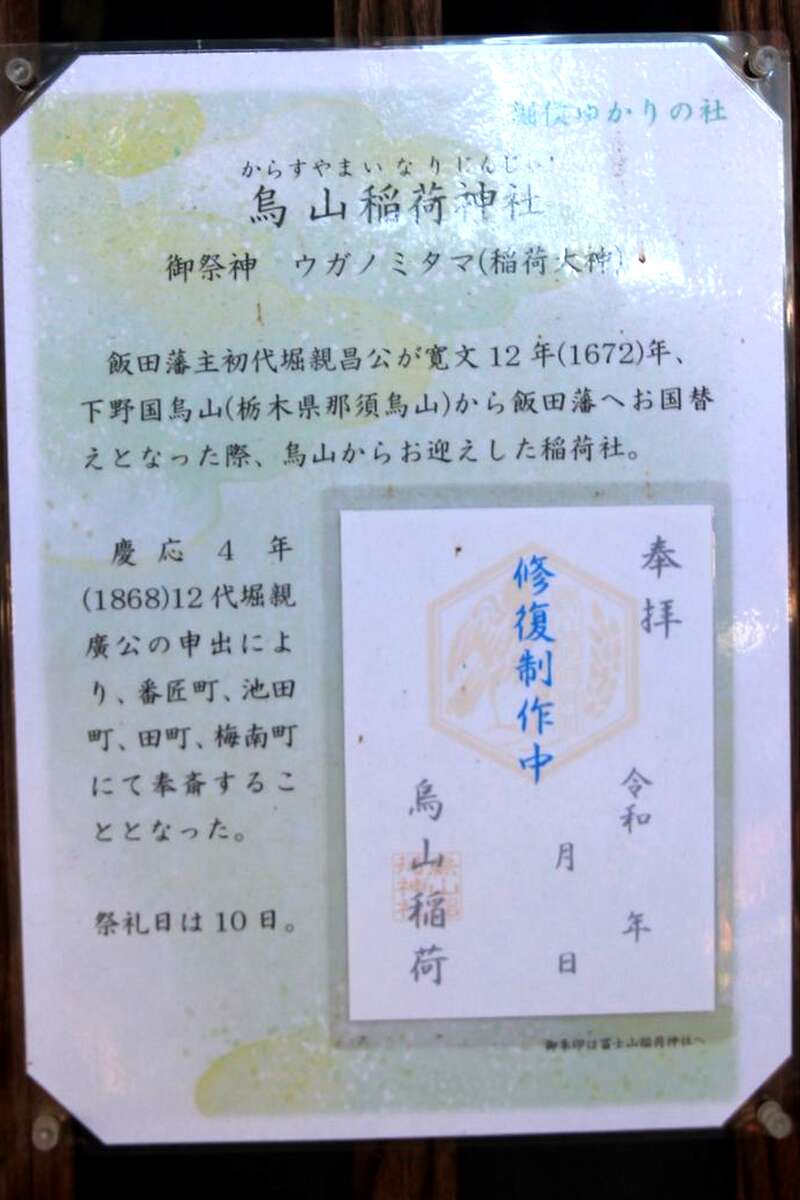 ゆかりの社
からすやまいなりじんじゃ
烏山稲荷神社
御祭神 ウガノミタマ(稲荷大神)
飯田藩主初代堀親昌公が寛文12年(1672)年、
下野国烏山(栃木県那須烏山)から飯田藩へお国替
えとなった際、烏山からお迎えした稲荷社。
慶応4年
(1868)12代堀親
廣公の申出によ
り、番匠町、池田
町、田町、梅南町
にて奉斎するこ
ととなった。
祭礼日は10日。
奉拝
修復制作中
令和 年
月 日
烏山稲荷
御朱印は冨士山稲荷神社へ